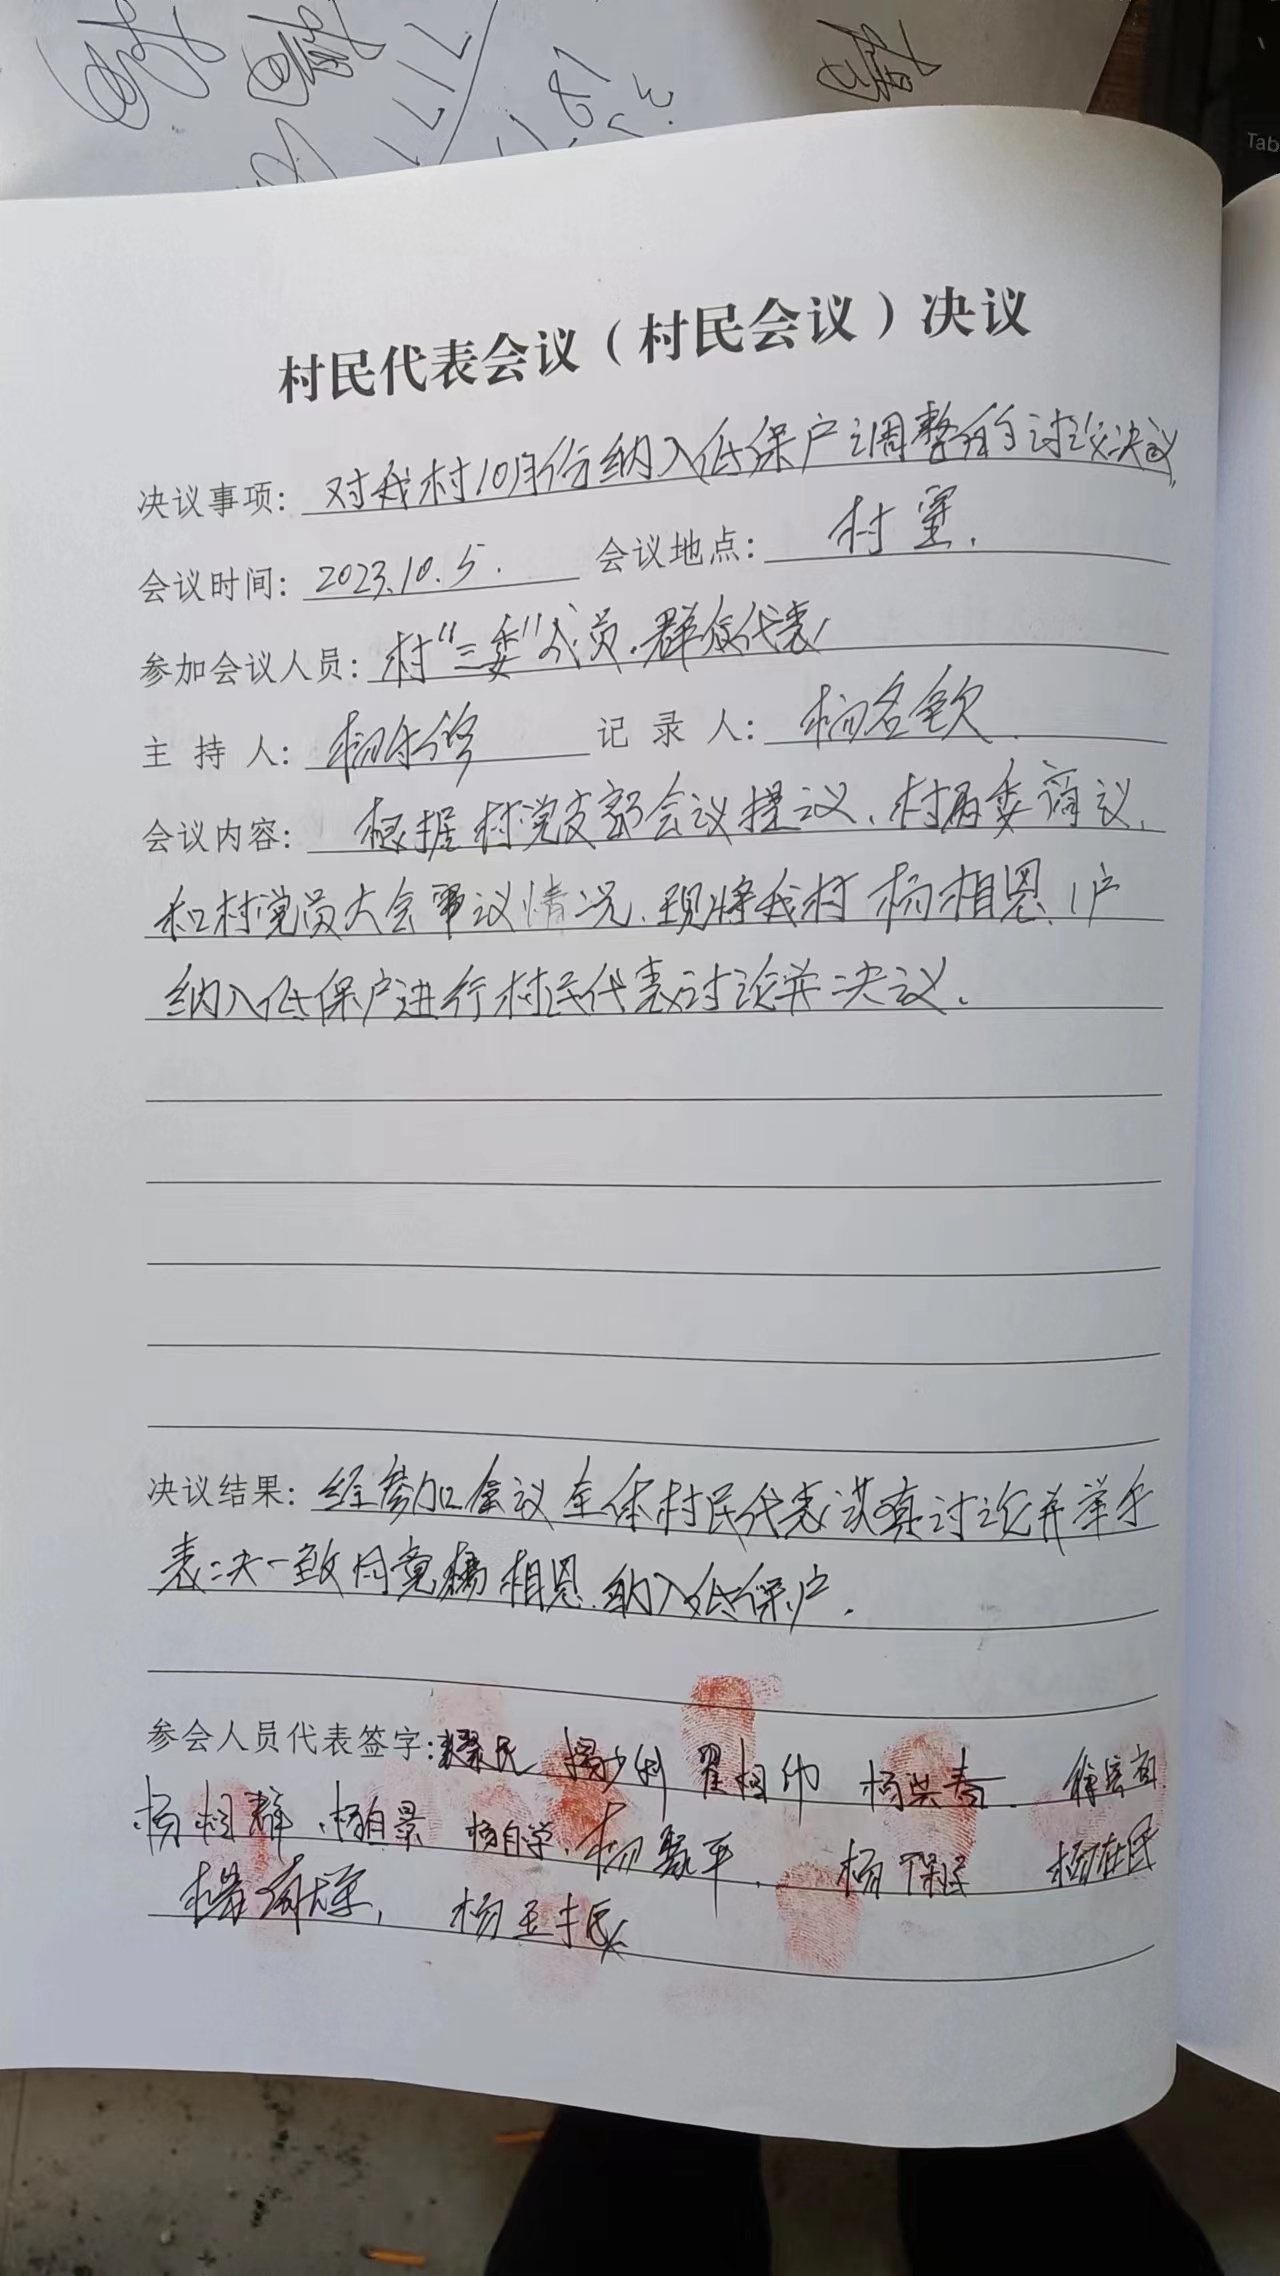 Tab
村民代表会议（村民会议）决议
决议事项：对我村10月份纳入低保户调整的讨论决议.
会议时间：2023.10.5. 会议地点：村室.
参加会议人员：村"三委"成员.群众代表
主持人：杨 记录人：杨名钦
会议内容：根据村党支部会议提议、村两委商议、
和村党员大会审议情况、现将我村杨相恩、1户
纳入低保户进行村民代表讨论并决议.
决议结果：经参加会议全体村民代表认真讨论并举手
表决一致同意杨相恩.纳入低保户.
参会人员代表签字： 杨少利 翟相 杨洪春
杨相群.杨自景 杨自学.杨 平. 杨保民 杨在民
杨 杨